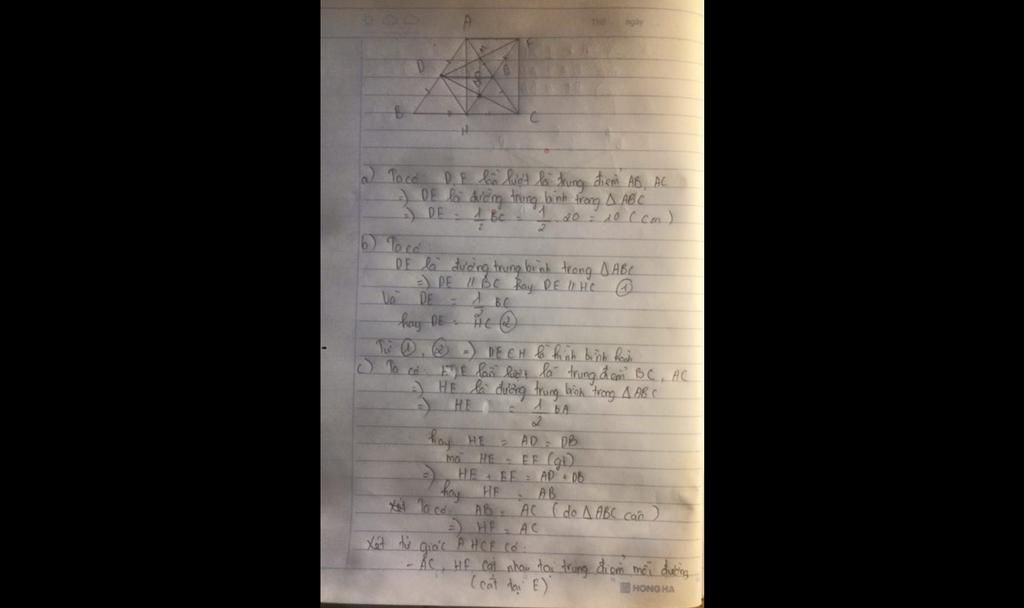 Thứ ngày
A
F
D
B
H
C
a) Ta có: D, E lần lượt là trung điểm AB, AC
=) DE là đường trung bình trong ΔABC
=) DE = 1/2 BC = 1/2 . 20 = 10 (cm)
b) Ta có:
DE là đường trung bình trong ΔABC
=) DE // BC hay DE // HC ①
Và DE = 1/2 BC
hay DE = HC ②
Từ ①, ② =) DECH là hình bình hành
c) Ta có: E lần lượt là trung điểm BC, AC
=) HE là đường trung bình trong ΔABC
=) HE = 1/2 BA
hay HE = AD = DB
mà HE = EF (gt)
=) HE + EF = AD + DB
hay HF = AB
Ta có: AB = AC (do ΔABC cân)
=) HF = AC
Xét tứ giác AHCF có:
- AC, HF cắt nhau tại trung điểm mỗi đường
(cắt tại E)
HONG HA